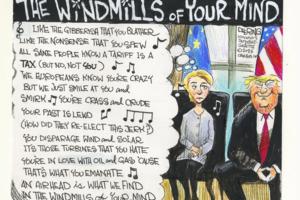 THE WINDMILLS OF YOUR MIND
LIKE THE GIBBERISH THAT YOU BLATHER
LIKE THE NONSENSE THAT YOU SPEW
ALL SANE PEOPLE KNOW A TARIFF IS A
TAX (BUT NO, NOT YOU)
WE EUROPEANS KNOW YOU'RE CRAZY
BUT WE JUST SMILE AT YOU AND
SMIRK YOU'RE CRASS AND CRUDE
YOUR PAST IS LEWD
(HOW DID THEY RE-ELECT THIS JERK?)
YOU DISPARAGE WIND AND SOLAR
IT'S THOSE TURBINES THAT YOU HATE
YOU'RE IN LOVE WITH OIL AND GAS 'CAUSE
THAT'S WHAT YOU EMANATE
AN AIRHEAD IS WHAT WE FIND
IN THE WINDMILLS OF YOUR MIND